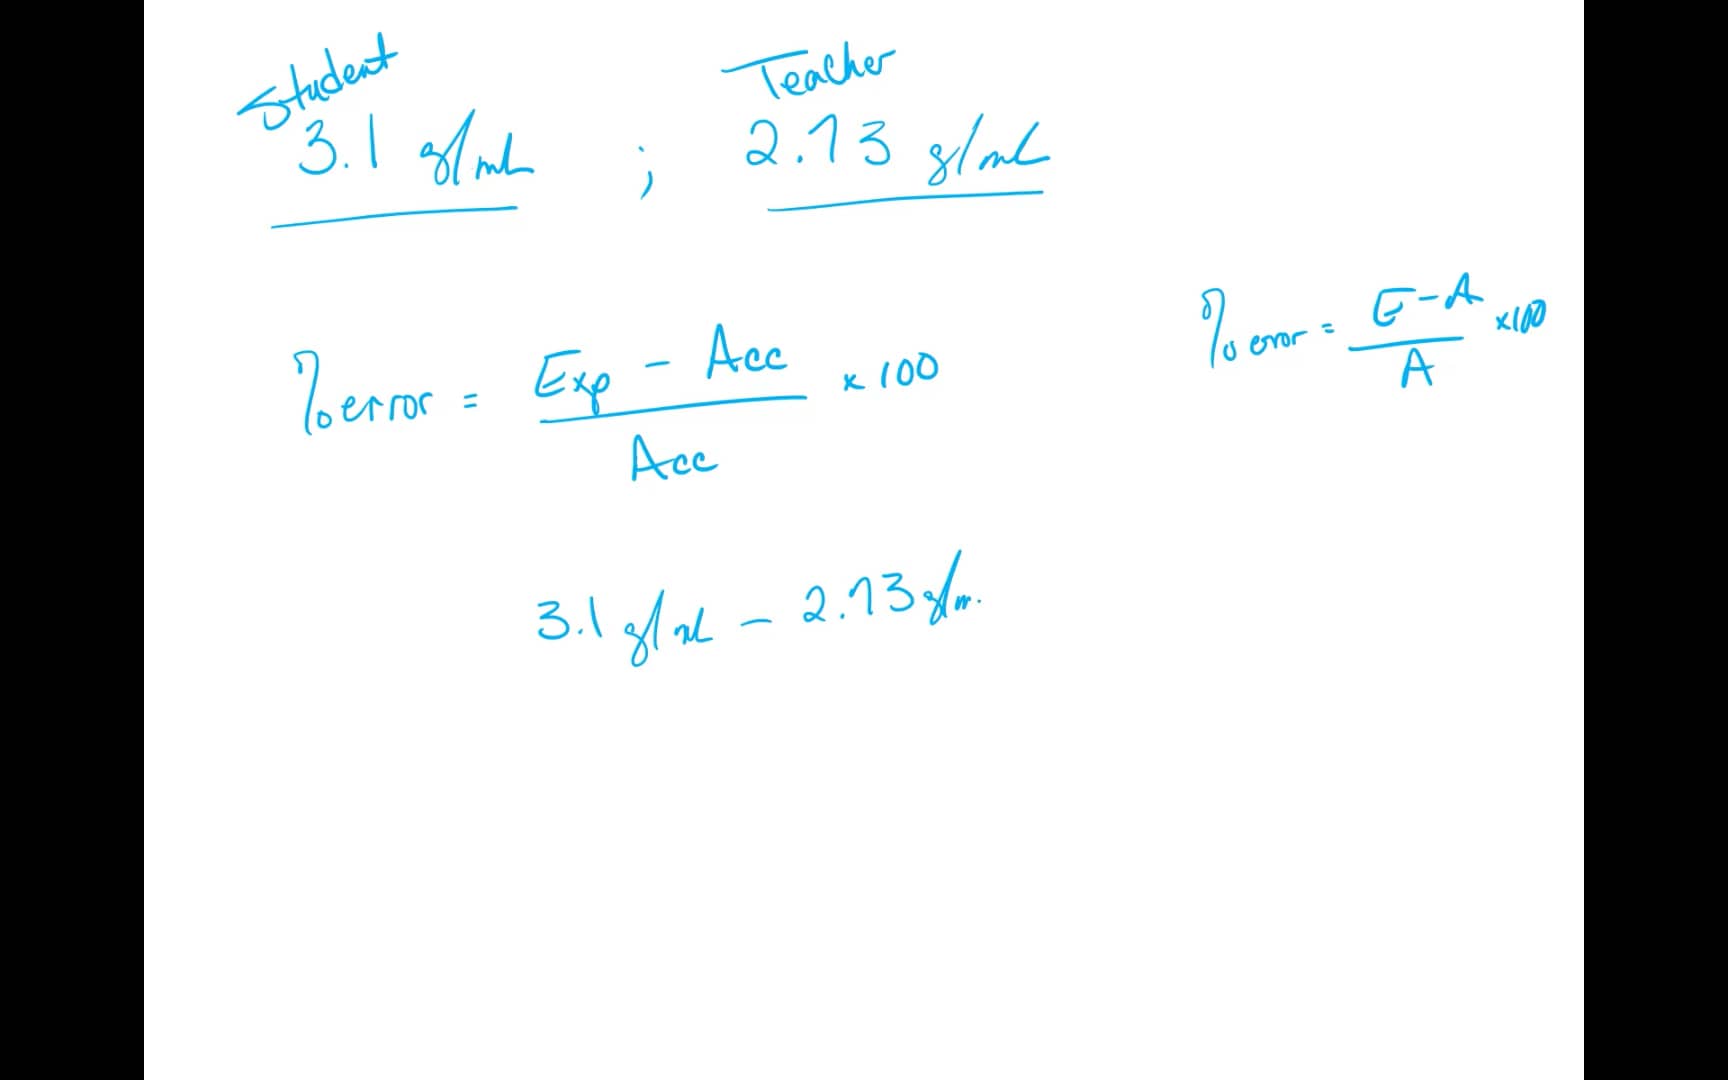 Student
Teacher
3.1 g/mL ; 2.73 g/mL
% error = Exp - Acc / Acc × 100
% error = E - A / A × 100
3.1 g/mL - 2.73 g/m.